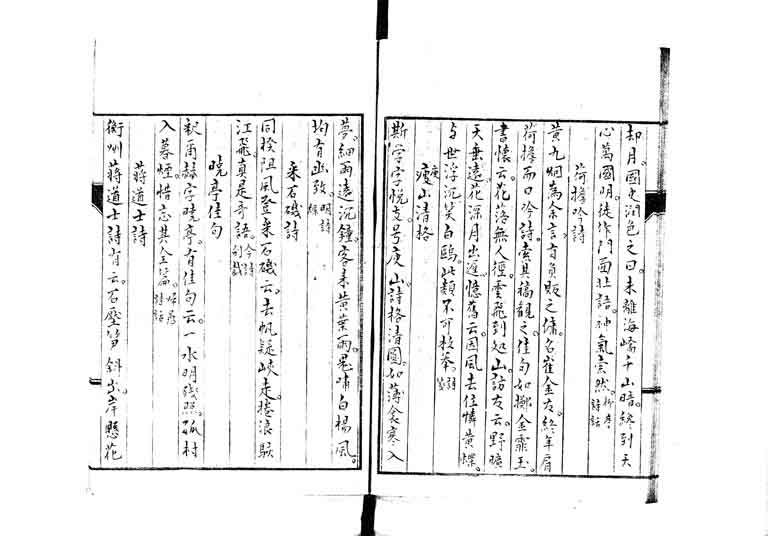 却月。國史潤色之曰。未離海嶠千山暗。終到天
心萬國明。徒作門面壯語。神氣索然。柳亭
詩話
荷擔吟詩
黃九烟為余言有負販之傭。名崔金友。終年肩
荷擔而口吟詩。索其稿觀之。佳句如擲金霏玉。
書懷云。花落無人徑。雲飛到処山。訪友云。野曠
天垂遠。花深月出遲。憶舊云。因風去住憐黃蝶。
与世浮沉笑白鷗。此類不可枚舉。
瘦山清格
斯學字悅支号庚山。詩格清圓。如薄衾寒入
夢。細雨遠沉鐘。客來黃葉雨。鬼嘯白楊風。
均有幽致。明詩
綜
采石磯詩
同揆阻風登采石磯云。去帆疑峽走。捲浪駭
江飛。真是奇語。今詩
別裁
曉亭佳句
字曉亭。有佳句云。一水明殘照。孤村
入暮煙。惜忘其全篇。
詩話
蔣道士詩
衡州蔣道士詩有云。石壓筍斜出。岸懸花